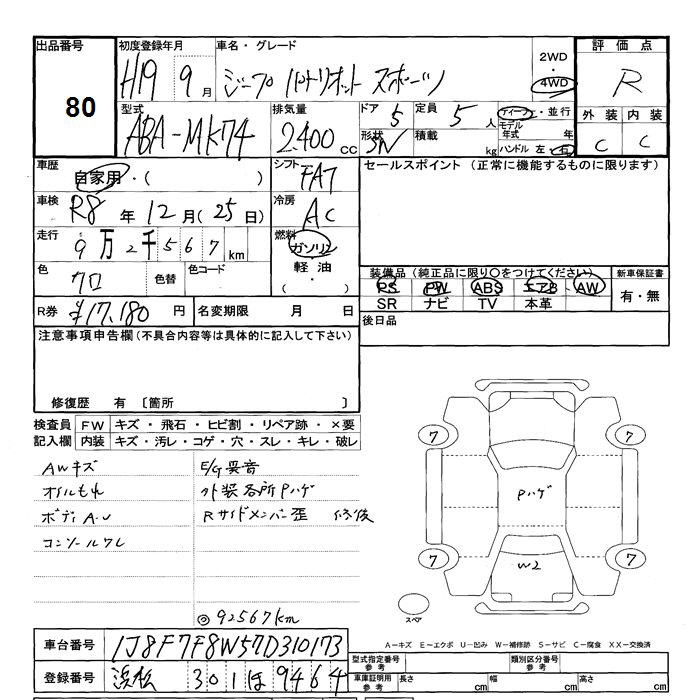 出品番号 初度登録年月 車名・グレード 2WD・4WD 評価点
80 H19年 9月 ジープ パトリオット スポーツ R
型式 排気量 ドア 定員 ディーラー・並行 外装 内装
ABA-MK74 2400cc 5 5人 モデル年式 年 C C
形状 積載 kg ハンドル 左・右
SW
車歴 シフト セールスポイント(正常に機能するものに限ります)
自家用・( ) FAT
車検 冷房
R8年 12月(25日) AC
走行 燃料
9万2千567km ガソリン
軽油
・( )
色 色替 色コード
クロ
装備品(純正品に限り○をつけてください) 新車保証書
PS PW ABS エアB AW 有・無
SR ナビ TV 本革
R券 ¥17,180円 名変期限 月 日
後日品
注意事項申告欄(不具合内容等は具体的に記入して下さい)
修復歴 有 〔箇所
検査員 FW キズ・飛石・ヒビ割・リペア跡・×要
記入欄 内装 キズ・汚レ・コゲ・穴・スレ・キレ・破レ
AWキズ E/G異音
オイルもれ 外装各所Pハゲ
ボディA・U Rサイドメンバー歪 修後
コンソールワレ
◎92567km
7 7
Pハゲ
7 7
W2
スペア
A-キズ E-エクボ U-凹み W-補修跡 S-サビ C-腐食 XX-交換済
車台番号 1J8F7F8W57D310173
登録番号 浜松 301 は 9464
型式指定番号 参考 類別区分番号 参考
車庫証明用 参考 長さ cm 幅 cm 高さ cm